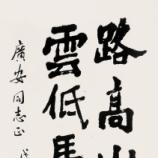 路高山
雲低馬
廣安同志正